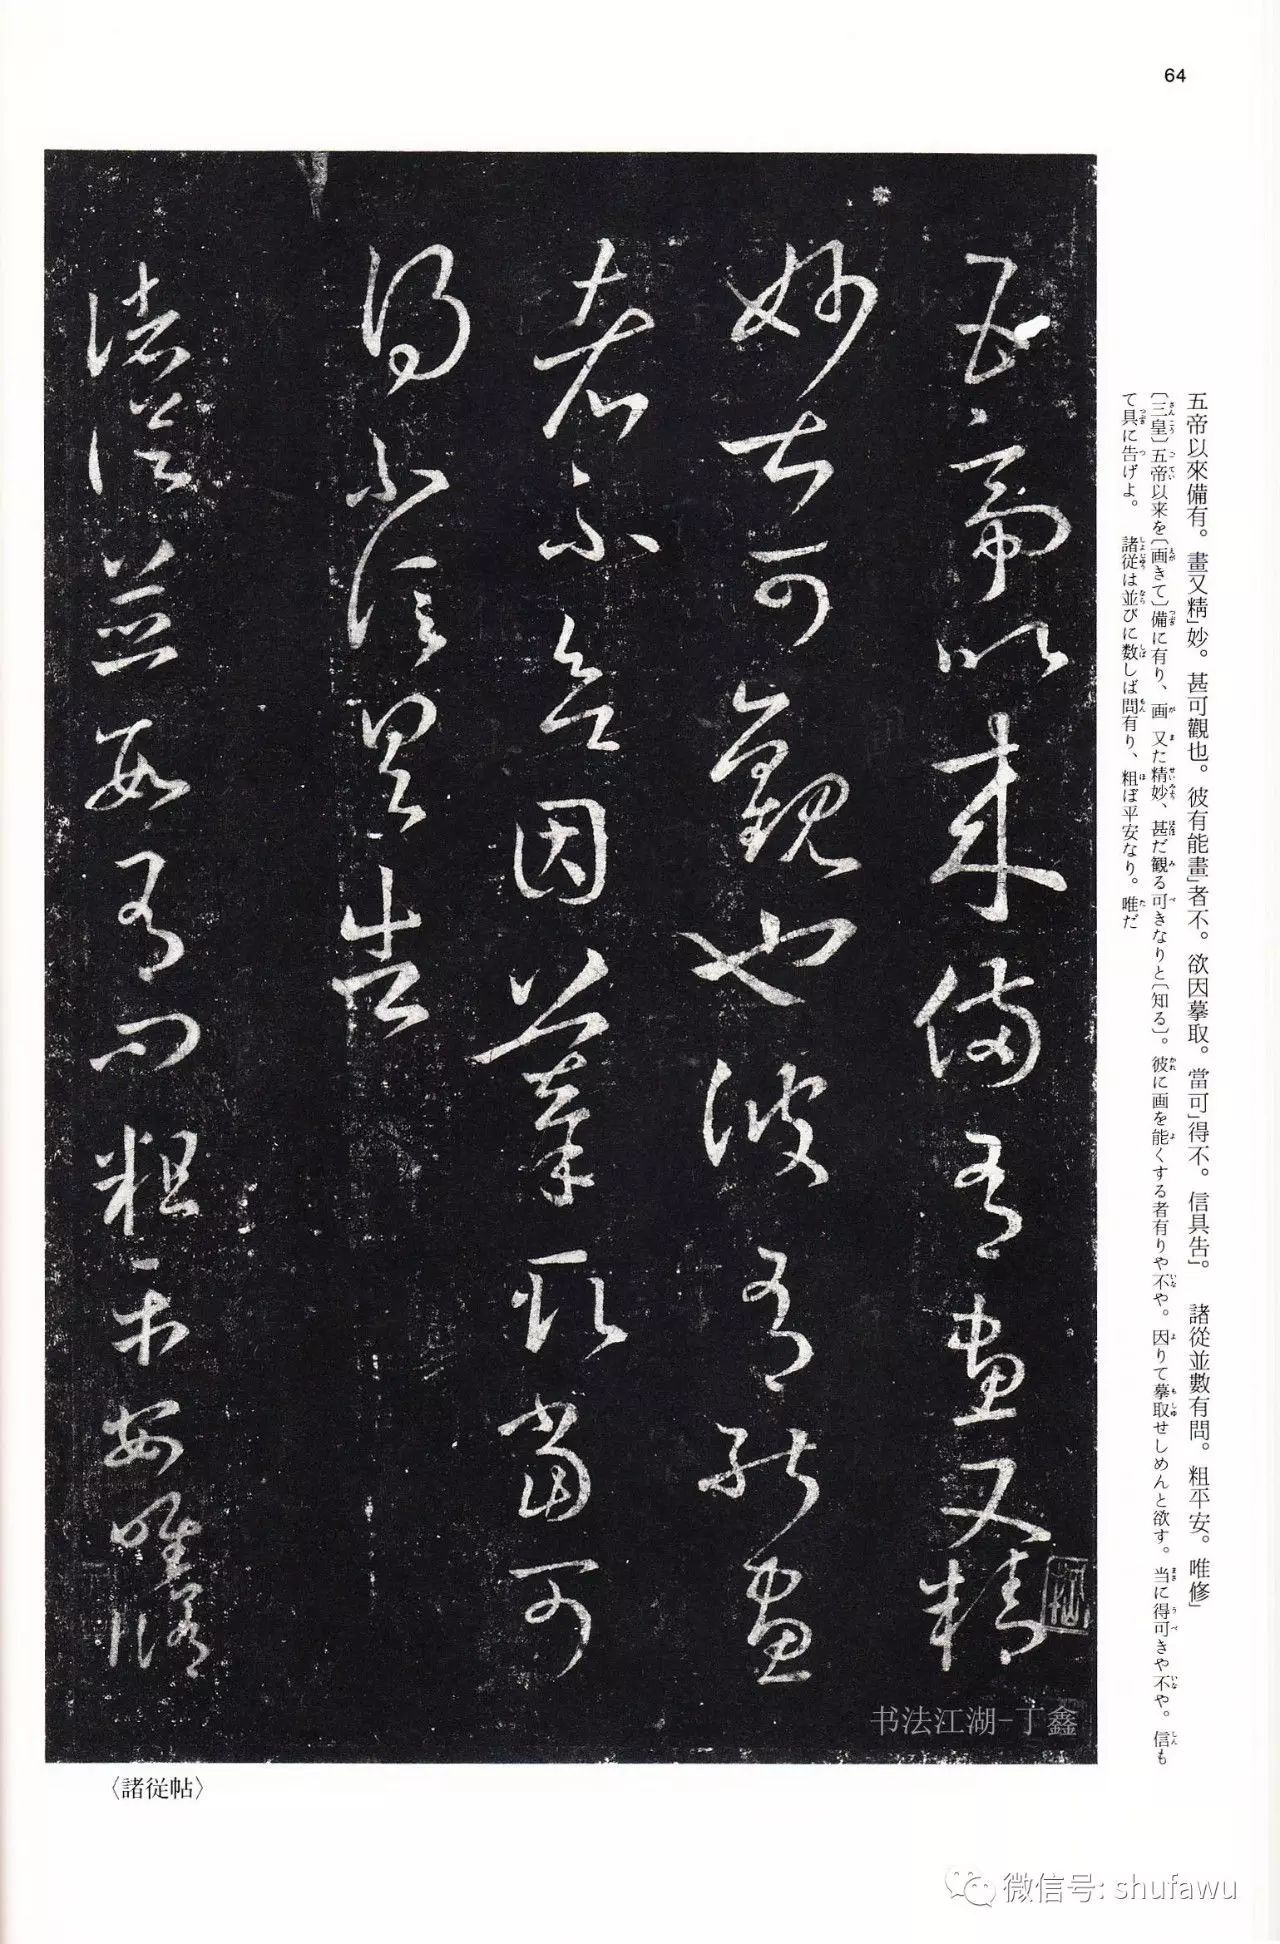 64
五帝以來備有。畫又精」妙。甚可觀也。彼有能畫」者不。欲因摹取。當可」得不。信具告」　諸從並數有問。粗平安。唯修」
〔三皇〕五帝以来を〔画きて〕備に有り、画又た精妙、甚だ観る可きなりと〔知る〕。彼に画を能くする者有りや不や。因りて摹取せしめんと欲す。当に得可きや不や。信も
て具に告げよ。　諸従は並びに数しば問有り、粗ぼ平安なり。唯だ
五帝以來備有畫又精
妙甚可觀也彼有能畫
者不欲因摹取當可
得不信具告
諸從並數有問粗平安唯修
〈諸従帖〉
书法江湖-丁鑫
微信号: shufawu